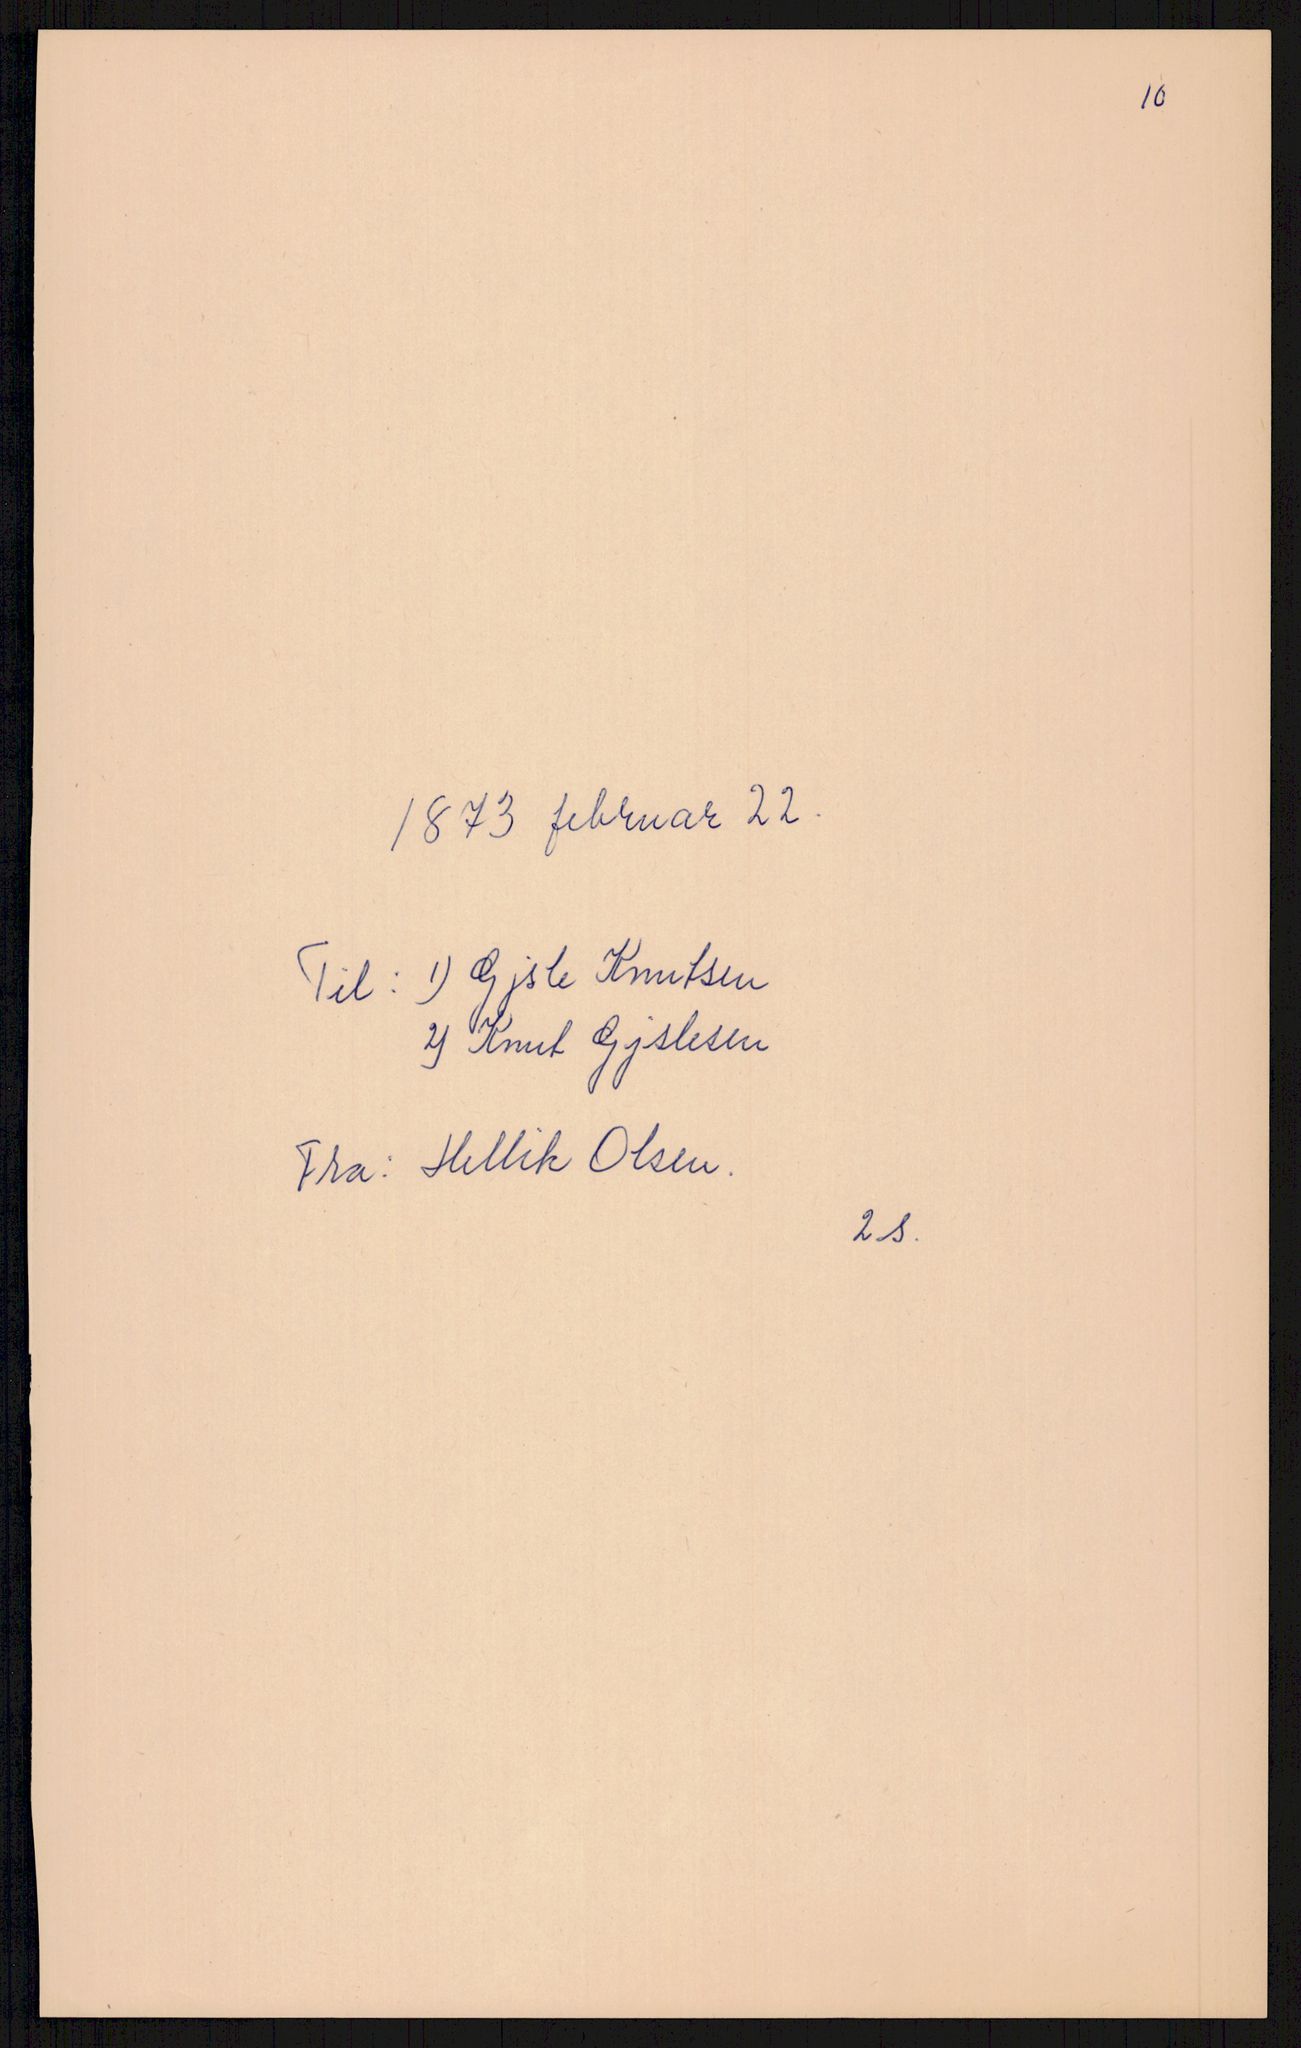 10
1873 februar 22.
Til: 1) Gjsle Knutsen
2) Knut Gjslesen
Fra: Hellik Olsen.
2 s.